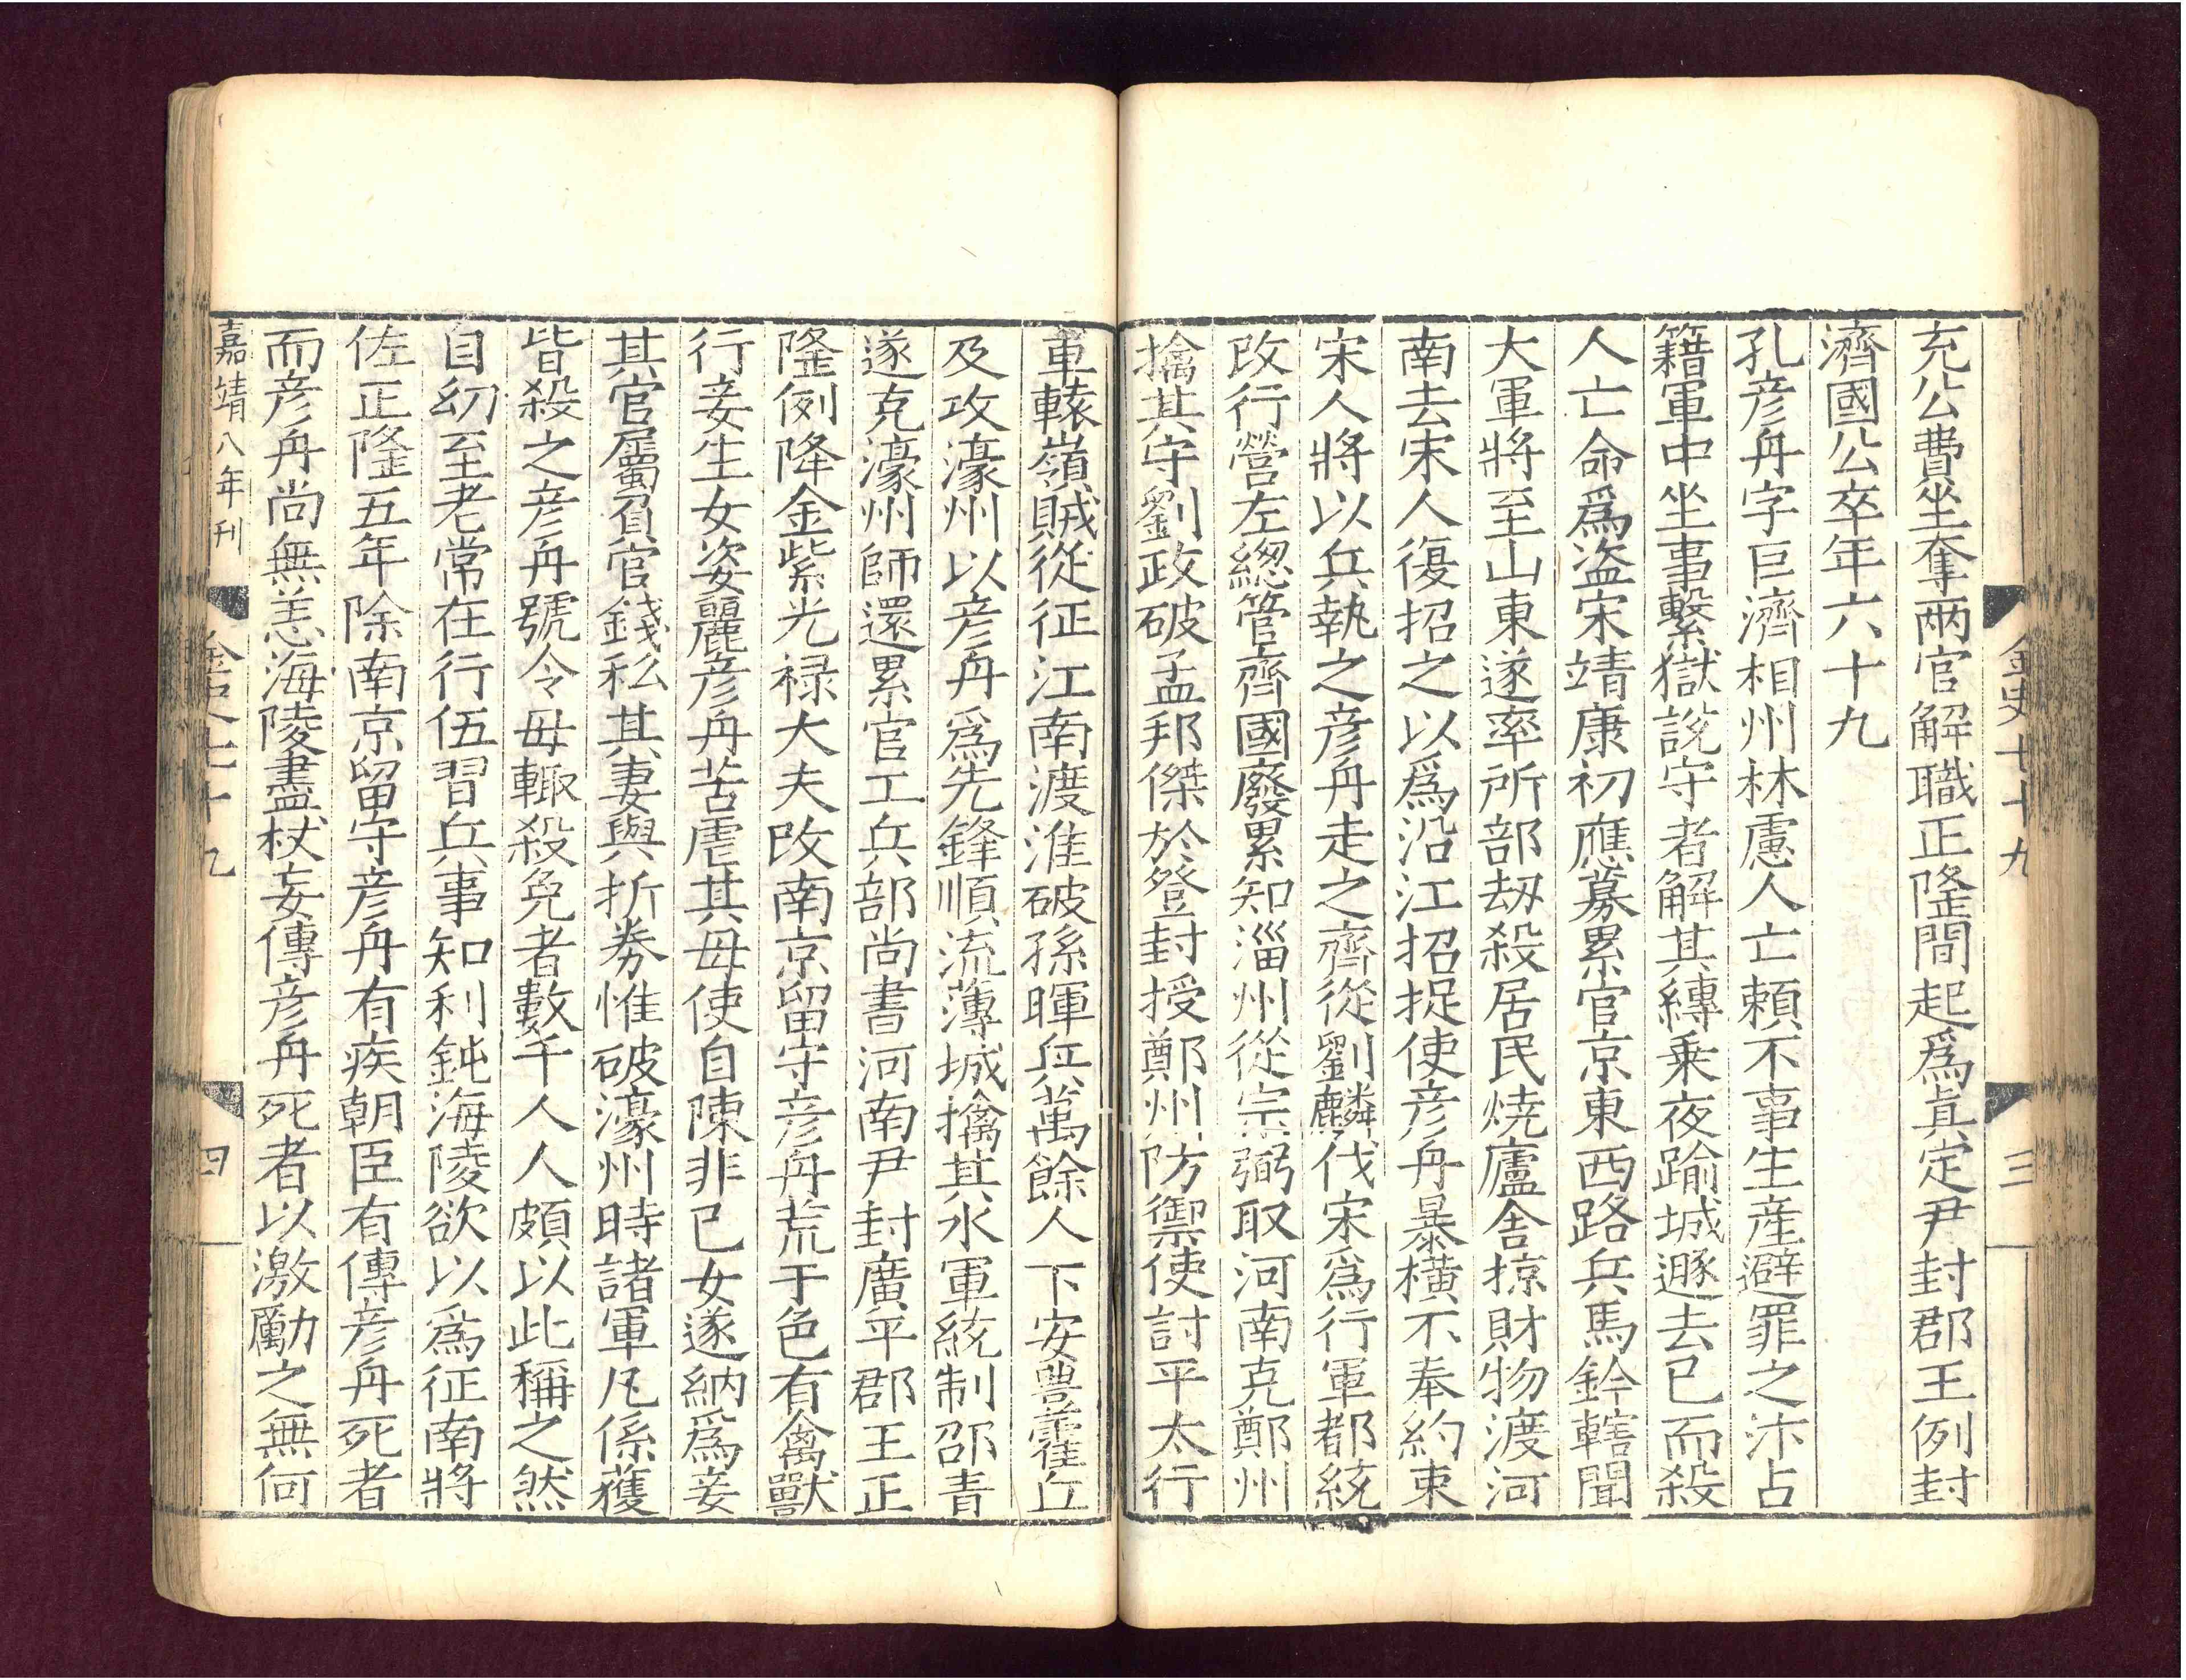 金史七十九
三
充公費坐奪兩官解職正隆間起爲眞定尹封郡王例封
濟國公卒年六十九
孔彦舟字巨濟相州林慮人亡賴不事生産避罪之汴占
籍軍中坐事繫獄說守者解其縛乗夜踰城遯去已而殺
人亡命爲盗宋靖康初應募累官京東西路兵馬鈐轄聞
大軍將至山東遂率所部刼殺居民燒廬舍掠財物渡河
南去宋人復招之以爲沿江招捉使彦舟暴横不奉約束
宋人將以兵執之彦舟走之齊從劉麟伐宋爲行軍都統
改行營左緫管齊國廢累知淄州從宗弼取河南克鄭州
擒其守劉政破孟邦傑於登封授鄭州防禦使討平太行
車轅嶺賊從征江南渡淮破孫暉兵萬餘人下安豊霍丘
及攻濠州以彦舟爲先鋒順流薄城擒其水軍統制邵青
遂克濠州師還累官工兵部尚書河南尹封廣平郡王正
隆例降金紫光禄大夫改南京留守彦舟荒于色有禽獸
行妾生女姿麗彦舟苦虐其母使自陳非已女遂納爲妾
其官屬負官錢私其妻與折券惟破濠州時諸軍凡係獲
皆殺之彦舟號令毋輙殺免者數千人人頗以此稱之然
自幼至老常在行伍習兵事知利鈍海陵欲以爲征南將
佐正隆五年除南京留守彦舟有疾朝臣有傳彦舟死者
而彦舟尚無恙海陵盡杖妄傳彦舟死者以激勵之無何
嘉靖八年刊
金史七十九
四